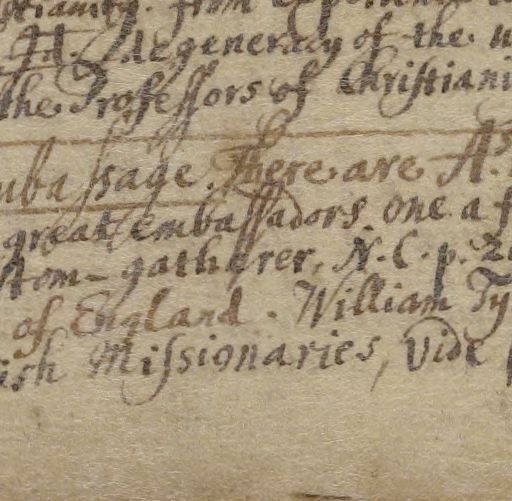 stianity. from
H. degeneracy of the
the Professors of Christiani
mbassage. There are As.
great embassadors one a f
stom-gatherer, N.C. p. 2
of England. William Ty
ish Missionaries, Vide